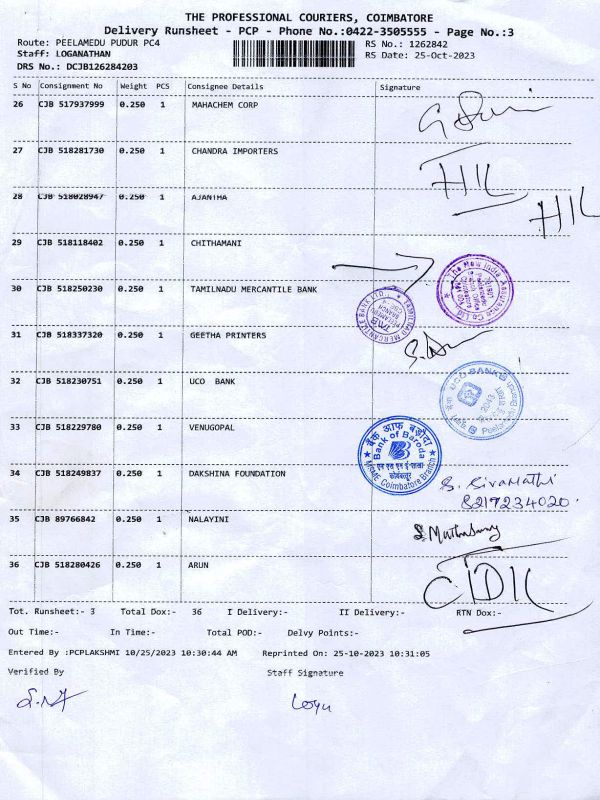 THE PROFESSIONAL COURIERS, COIMBATORE
Delivery Runsheet - PCP - Phone No.:0422-3505555 - Page No.:3
Route: PEELAMEDU PUDUR PC4 RS No.: 1262842
Staff: LOGANATHAN RS Date: 25-Oct-2023
DRS No.: DCJB126284203
S No Consignment No Weight PCS Consignee Details Signature
26 CJB 517937999 0.250 1 MAHACHEM CORP
27 CJB 518281730 0.250 1 CHANDRA IMPORTERS
28 CJB 518028947 0.250 1 AJANTHA
29 CJB 518118402 0.250 1 CHITHAMANI
The New India Assurance Co. Ltd.
30 CJB 518250230 0.250 1 TAMILNADU MERCANTILE BANK
TAMILNAD MERCANTILE BANK LTD.,
TMB
31 CJB 518337320 0.250 1 GEETHA PRINTERS
32 CJB 518230751 0.250 1 UCO BANK
UCO BANK
33 CJB 518229780 0.250 1 VENUGOPAL
बैंक आफ बड़ौदा
Bank of Baroda
Coimbatore Branch
34 CJB 518249837 0.250 1 DAKSHINA FOUNDATION
8217234020
35 CJB 89766842 0.250 1 NALAYINI
36 CJB 518280426 0.250 1 ARUN
Tot. Runsheet:- 3 Total Dox:- 36 I Delivery:- II Delivery:- RTN Dox:-
Out Time:- In Time:- Total POD:- Delvy Points:-
Entered By :PCPLAKSHMI 10/25/2023 10:30:44 AM Reprinted On: 25-10-2023 10:31:05
Verified By Staff Signature